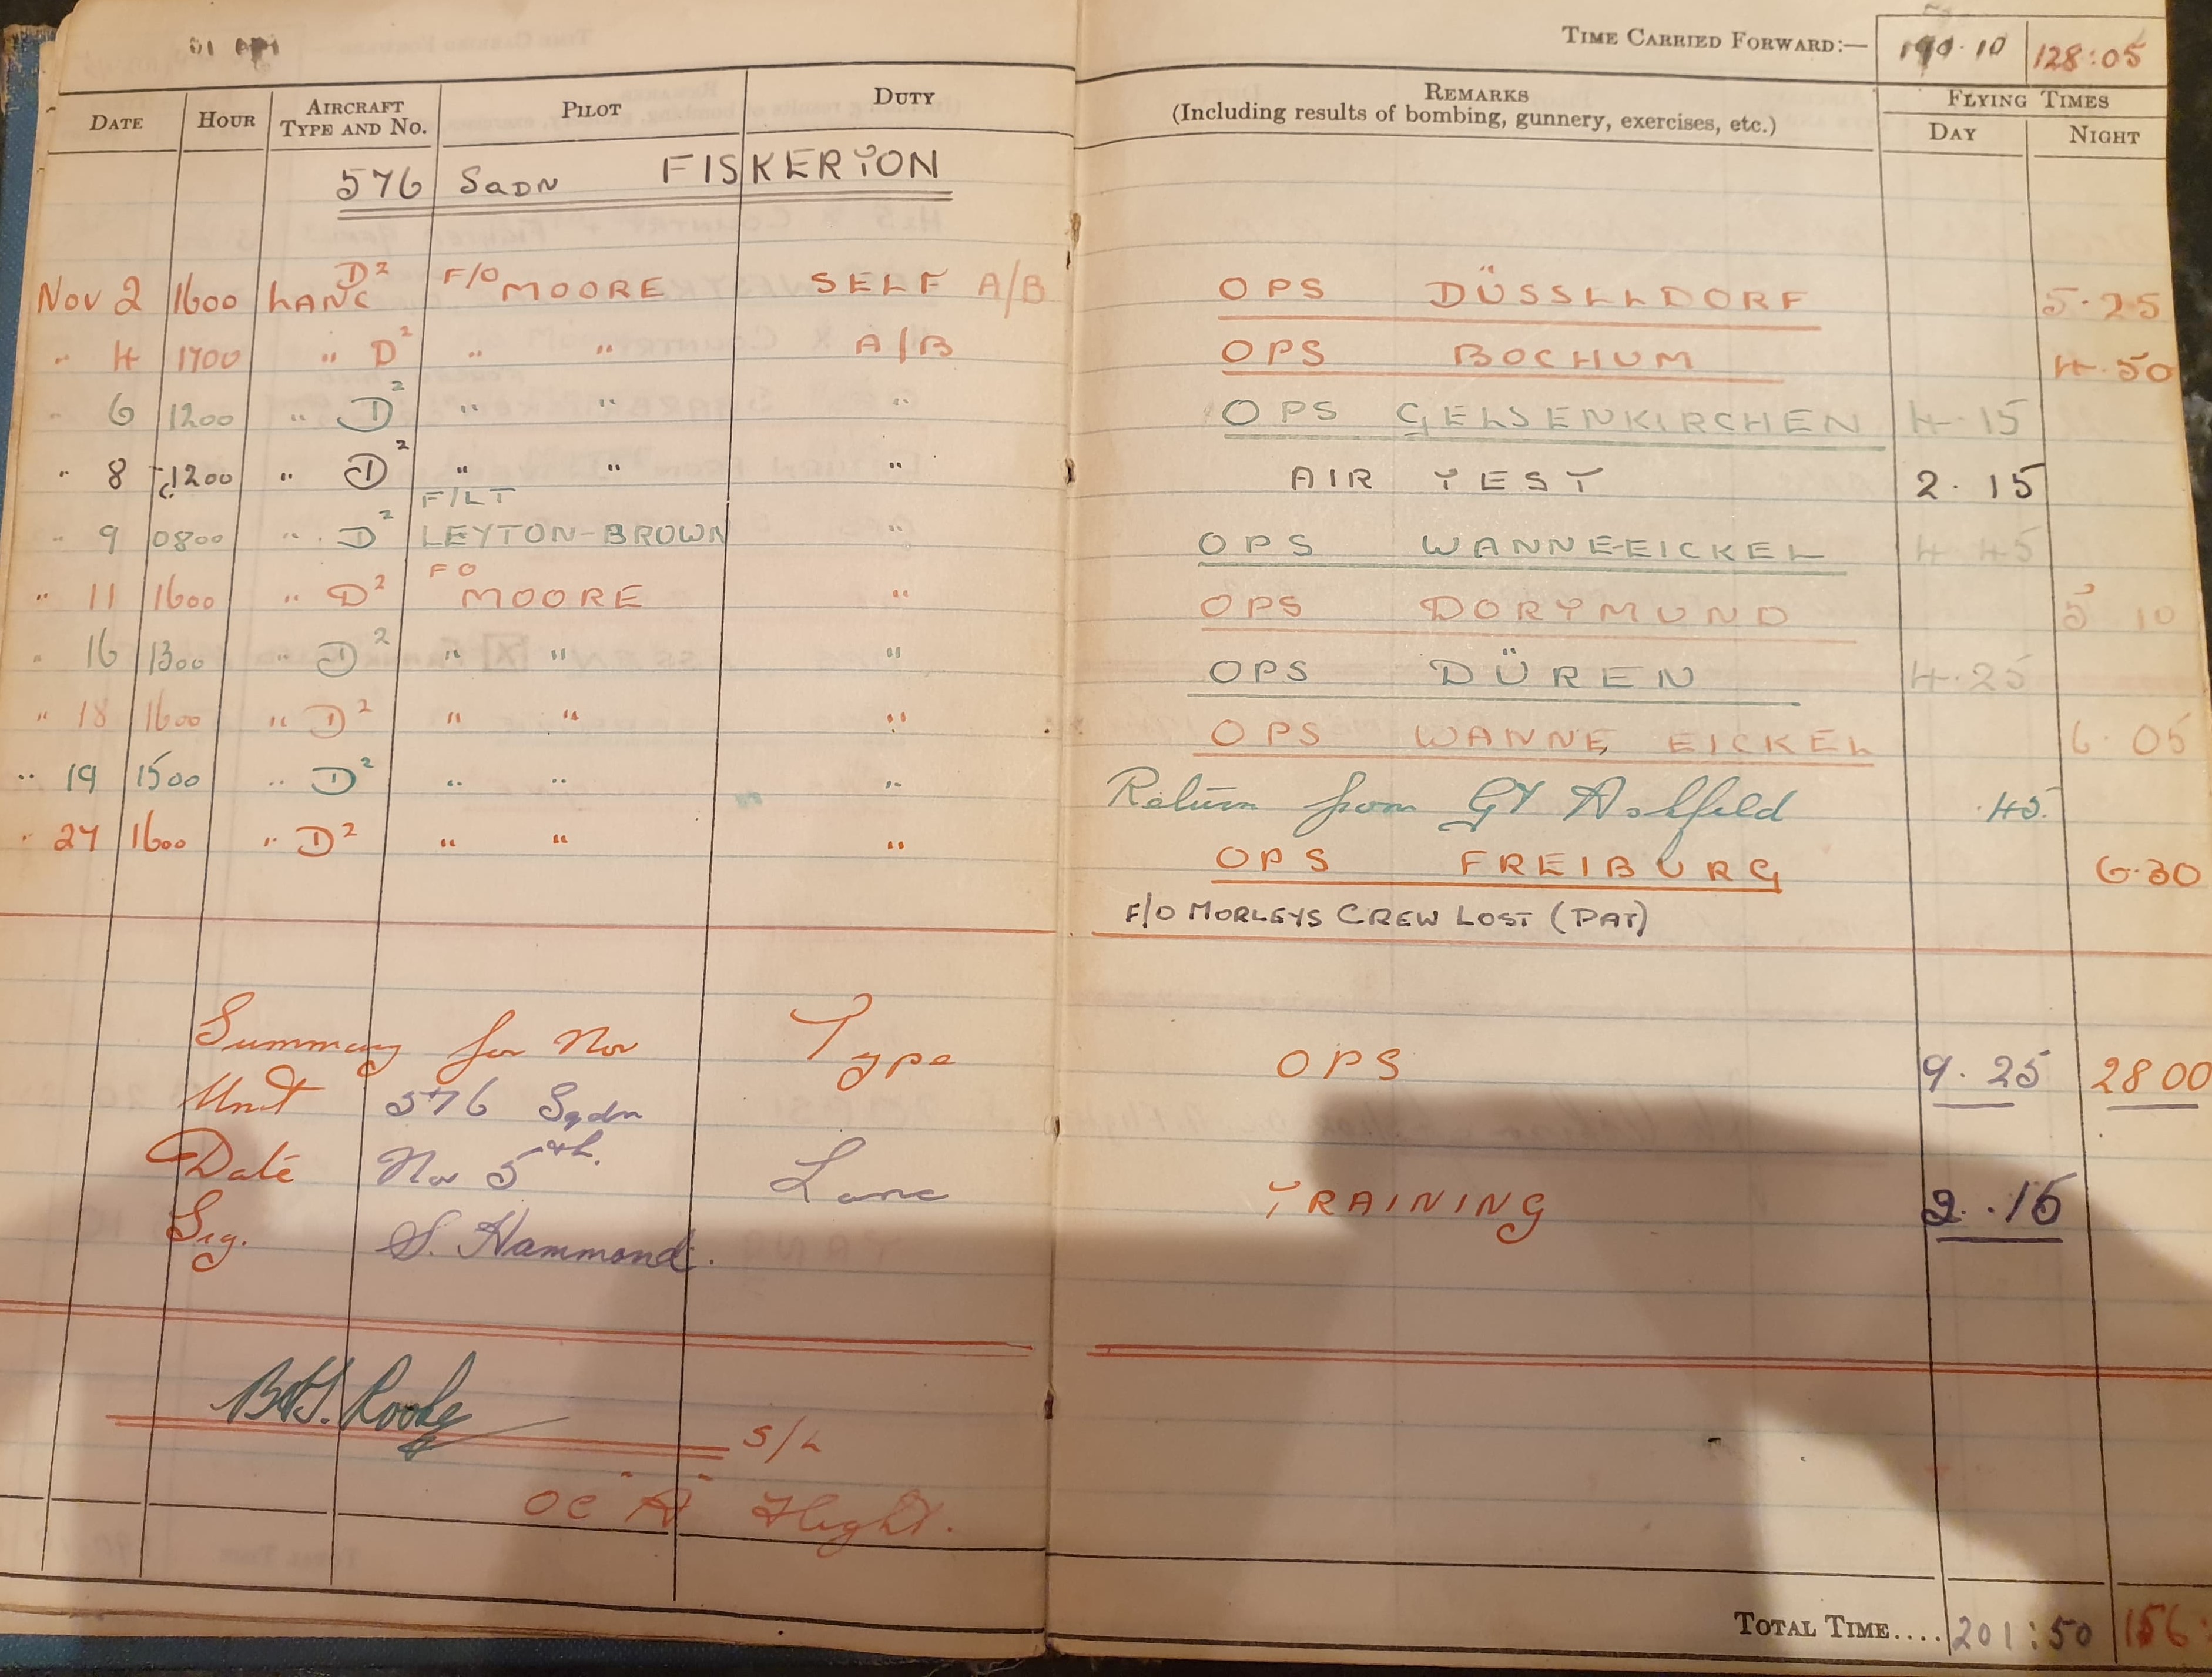 TIME CARRIED FORWARD:— 190.10 128:05
DATE HOUR AIRCRAFT TYPE AND NO. PILOT DUTY REMARKS (Including results of bombing, gunnery, exercises, etc.) FLYING TIMES DAY NIGHT
576 SQDN FISKERTON
Nov 2 1600 LANC D² F/O MOORE SELF A/B OPS DÜSSELDORF 5.25
" 4 1700 " D² " " A/B OPS BOCHUM 4.50
" 6 1200 " D² " " " OPS GELSENKIRCHEN 4.15
" 8 1200 " D² " " " AIR TEST 2.15
" 9 0800 " D² F/LT LEYTON-BROWN " OPS WANNE-EICKEL 4 45
" 11 1600 " D² FO MOORE " OPS DORTMUND 5 10
" 16 1300 " D² " " " OPS DÜREN 4.25
" 18 1600 " D² " " " OPS WANNE EICKEL 6 05
" 19 1500 " D² " " " Return from GT Ashfeld .45.
" 27 1600 " D² " " " OPS FREIBURG 6.30
F/O MORLEYS CREW LOST (PAT)
Summary for Nov Type OPS 9.25 28 00
Unit 576 Sqdn
Date Nov 5th. Lanc TRAINING 2.15
Sig. S. Hammond.
Rooke S/L
OC "A" Flight.
TOTAL TIME.... 201:50 156: